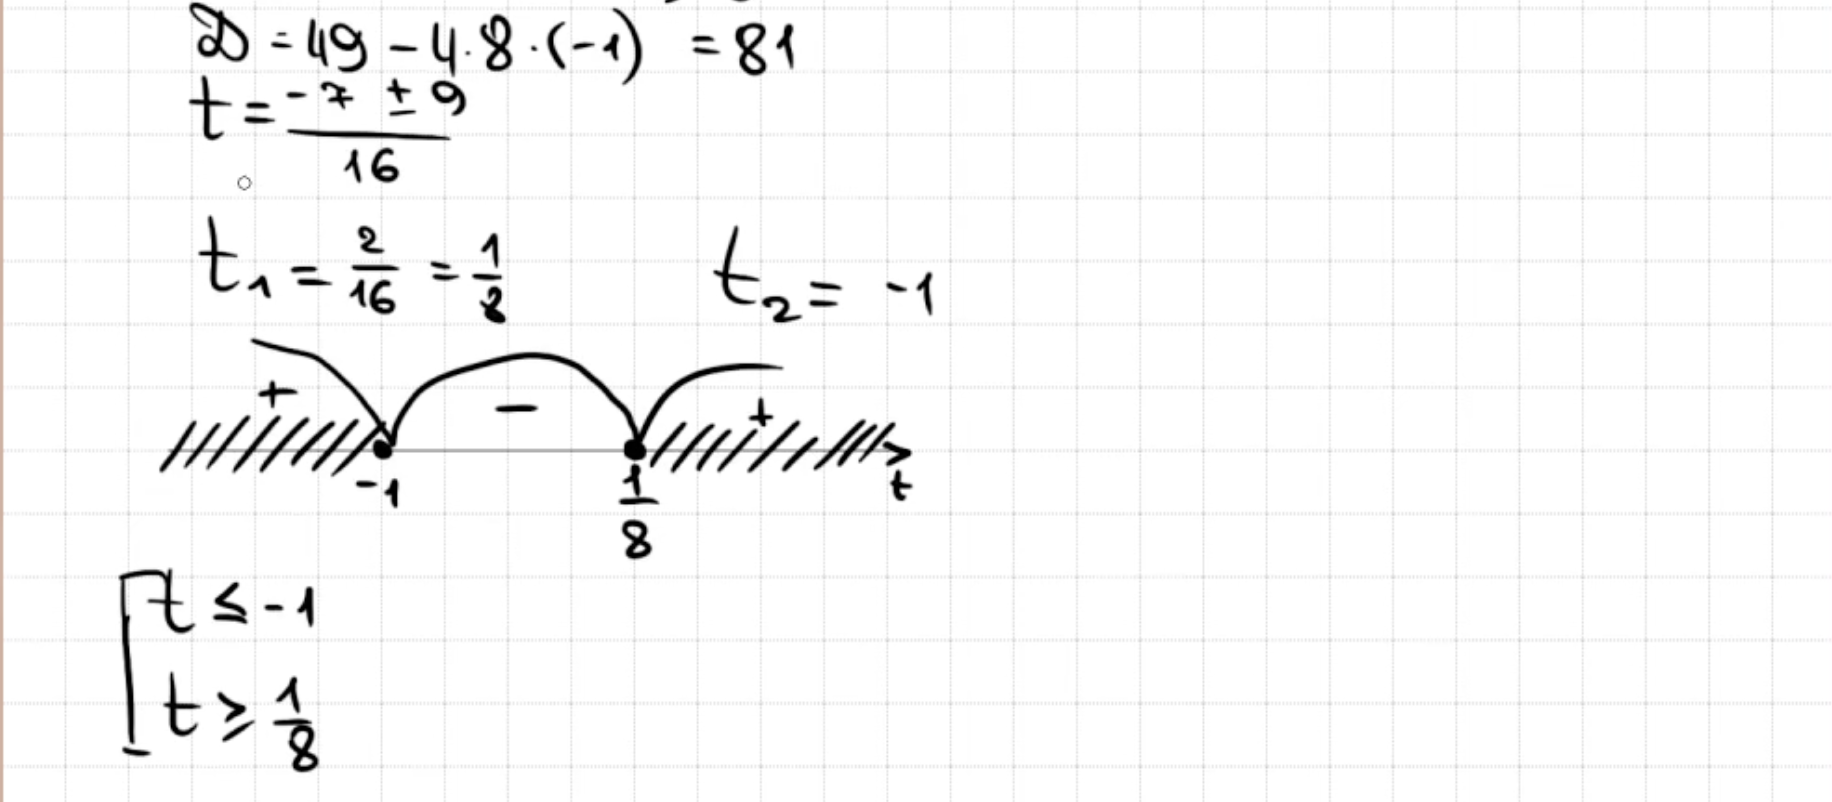 D = 49 - 4·8·(-1) = 81
t = (-7 ± 9)/16
t₁ = 2/16 = 1/8 t₂ = -1
+ - +
-1 1/8 t
[ t ≤ -1
t ≥ 1/8